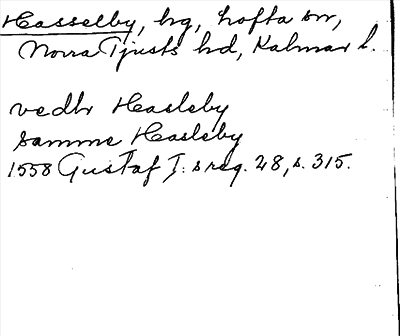 Hasselby, hg, Lofta sn,
Norra Tjusts hd, Kalmar l.
vedhr Hasleby
samme Hasleby
1558 Gustaf I: s reg. 28, s. 315.